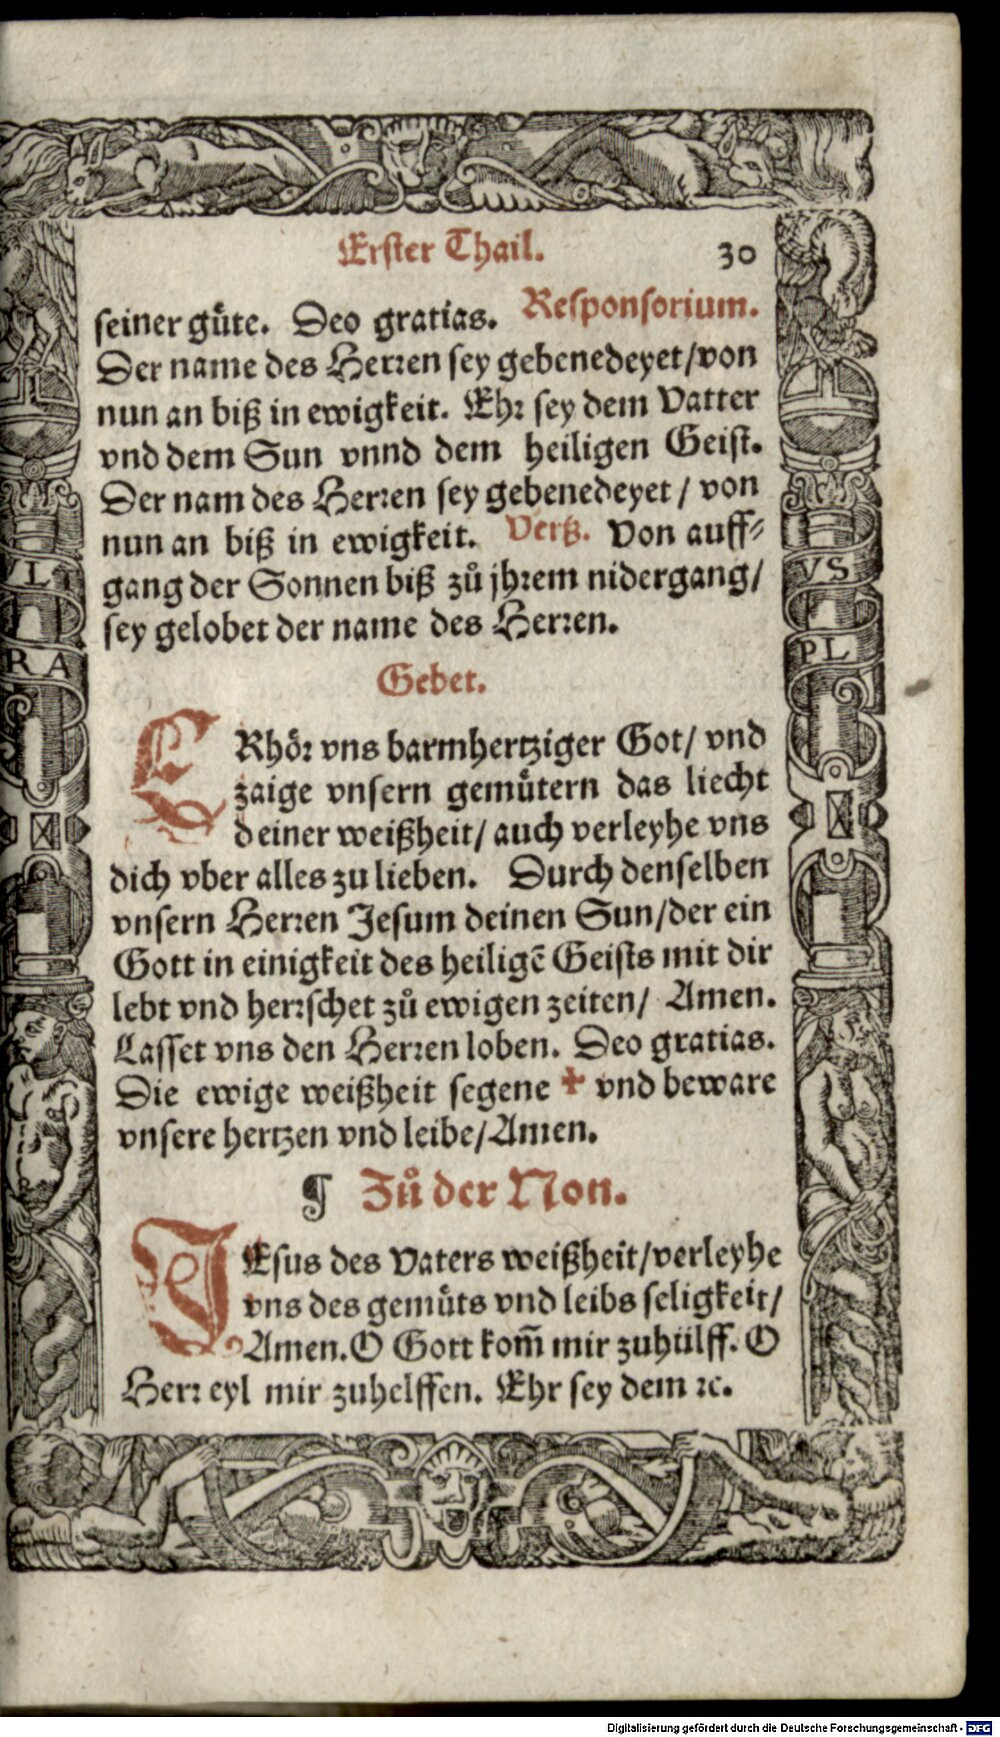 Erster Thail. 30
seiner gůte. Deo gratias. Responsorium.
Der name des Herren sey gebenedeyet/von
nun an biß in ewigkeit. Ehr sey dem Vatter
vnd dem Sun vnnd dem heiligen Geist.
Der nam des Herren sey gebenedeyet / von
nun an biß in ewigkeit. Verß. Von auff⸗
gang der Sonnen biß zů jhrem nidergang/
sey gelobet der name des Herren.
Gebet.
ERhoͤr vns barmhertziger Got/ vnd
zaige vnsern gemuͤtern das liecht
deiner weißheit/ auch verleyhe vns
dich vber alles zu lieben. Durch denselben
vnsern Herren Jesum deinen Sun/der ein
Gott in einigkeit des heiligē Geists mit dir
lebt vnd herrschet zů ewigen zeiten/ Amen.
Lasset vns den Herren loben. Deo gratias.
Die ewige weißheit segene ✠ vnd beware
vnsere hertzen vnd leibe/Amen.
¶ Zů der Non.
JEsus des Vaters weißheit/verleyhe
vns des gemuͤts vnd leibs seligkeit/
Amen. O Gott kom̃ mir zuhülff. O
Herr eyl mir zuhelffen. Ehr sey dem ꝛc.
VL
RA
VS
PL
Digitalisierung gefördert durch die Deutsche Forschungsgemeinschaft - DFG